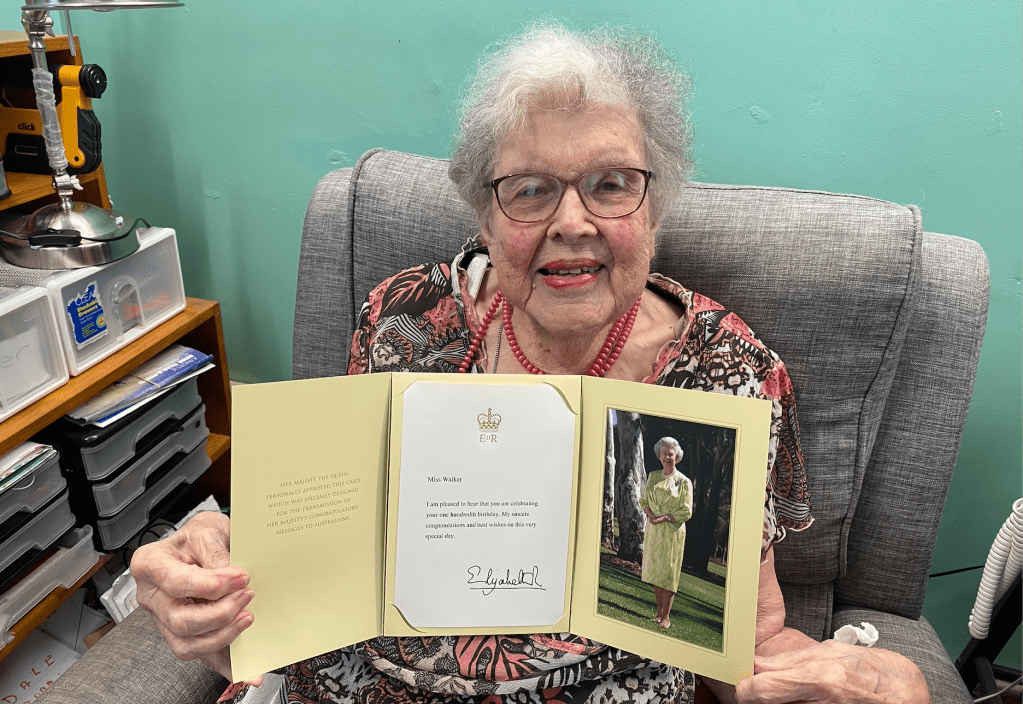 click
HER MAJESTY THE QUEEN
PERSONALLY APPROVED THIS CARD
WHICH WAS SPECIALLY DESIGNED
FOR THE TRANSMISSION OF
HER MAJESTY'S CONGRATULATORY
MESSAGES TO AUSTRALIANS.
EIIR
Miss Walker
I am pleased to hear that you are celebrating
your one hundredth birthday. My sincere
congratulations and best wishes on this very
special day.
Elizabeth R
DALE